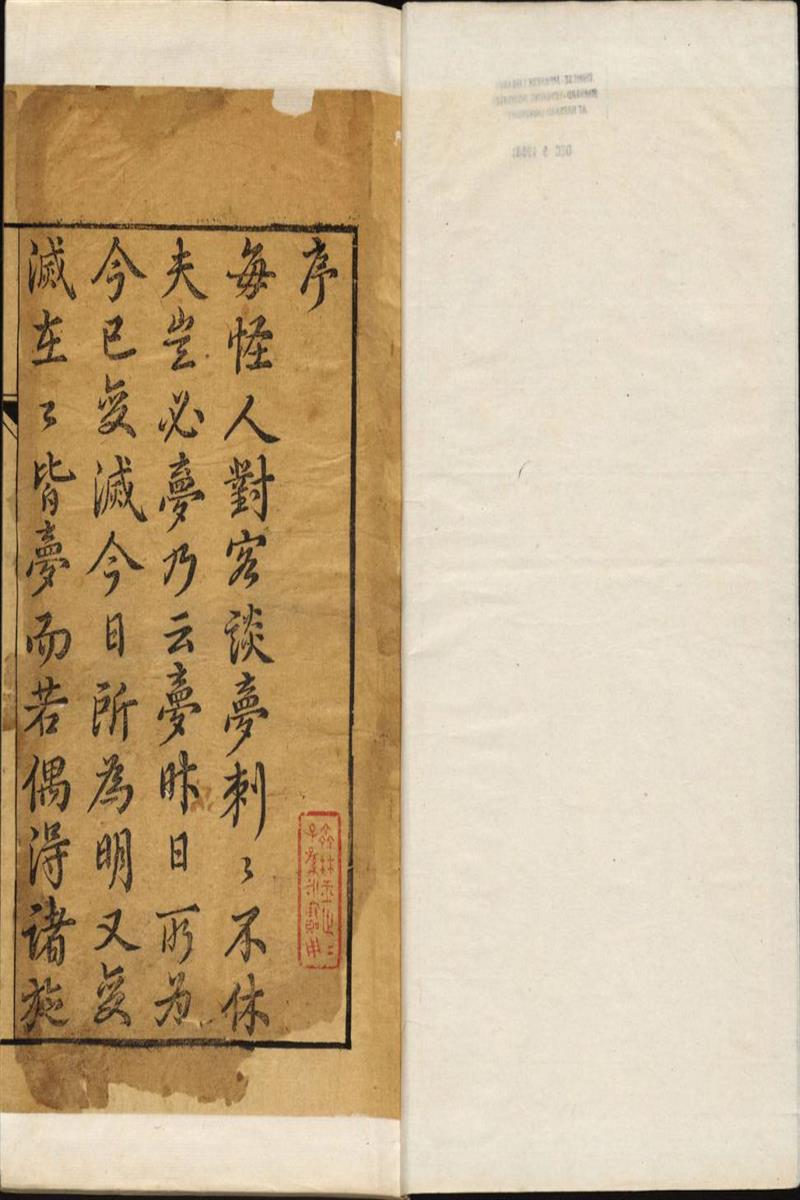 序
每怪人對客談夢刺〻不休
夫豈必夢乃云夢昨日所為
今已變滅今日所為明又變
滅在〻皆夢而若偶得諸旅